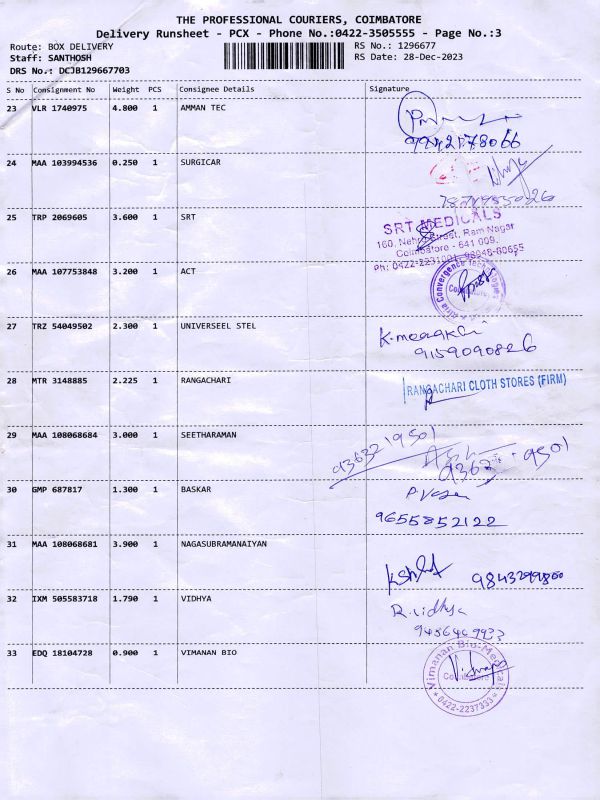 THE PROFESSIONAL COURIERS, COIMBATORE
Delivery Runsheet - PCX - Phone No.:0422-3505555 - Page No.:3
Route: BOX DELIVERY RS No.: 1296677
Staff: SANTHOSH RS Date: 28-Dec-2023
DRS No.: DCJB129667703
S No Consignment No Weight PCS Consignee Details Signature
23 VLR 1740975 4.800 1 AMMAN TEC
24 MAA 103994536 0.250 1 SURGICAR
25 TRP 2069605 3.600 1 SRT
SRT MEDICALS
160, Nehru Street, Ram Nagar
Coimbatore - 641 009.
26 MAA 107753848 3.200 1 ACT
27 TRZ 54049502 2.300 1 UNIVERSEEL STEL
9159090826
28 MTR 3148885 2.225 1 RANGACHARI
RANGACHARI CLOTH STORES (FIRM)
29 MAA 108068684 3.000 1 SEETHARAMAN
9363219501
30 GMP 687817 1.300 1 BASKAR
9655852122
31 MAA 108068681 3.900 1 NAGASUBRAMANAIYAN
32 IXM 505583718 1.790 1 VIDHYA
R.vidhya
33 EDQ 18104728 0.900 1 VIMANAN BIO
Vimanan Bio-Medical
0422-2237333